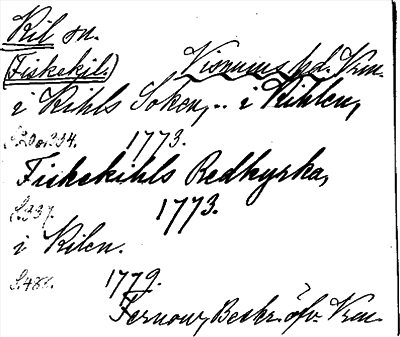 Kil sn.
(Fiskekil.) Visnums hd. Vrm.
i Kihls Soken, .. i Kihlen,
S. 20 o. 334. 1773.
Fiskekihls Redkyrka,
S. 337. 1773.
i Kilen.
S. 486. 1779.
Fernow, Beskr. öfv. Vrm.